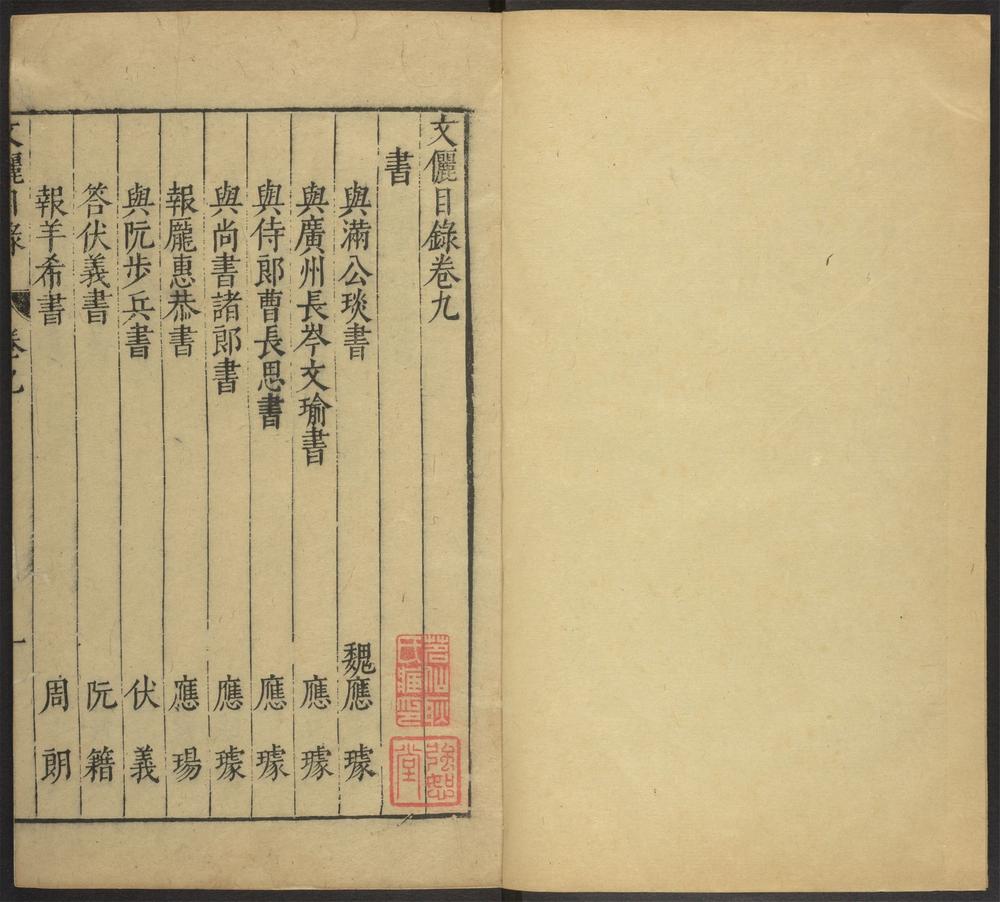 文儷目錄卷九
書
與滿公琰書 魏應璩
與廣州長岑文瑜書 應璩
與侍郎曹長思書 應璩
與尚書諸郎書 應璩
報龐惠恭書 應瑒
與阮步兵書 伏義
答伏義書 阮籍
報羊希書 周朗
文儷目錄 卷九 一
強恕堂